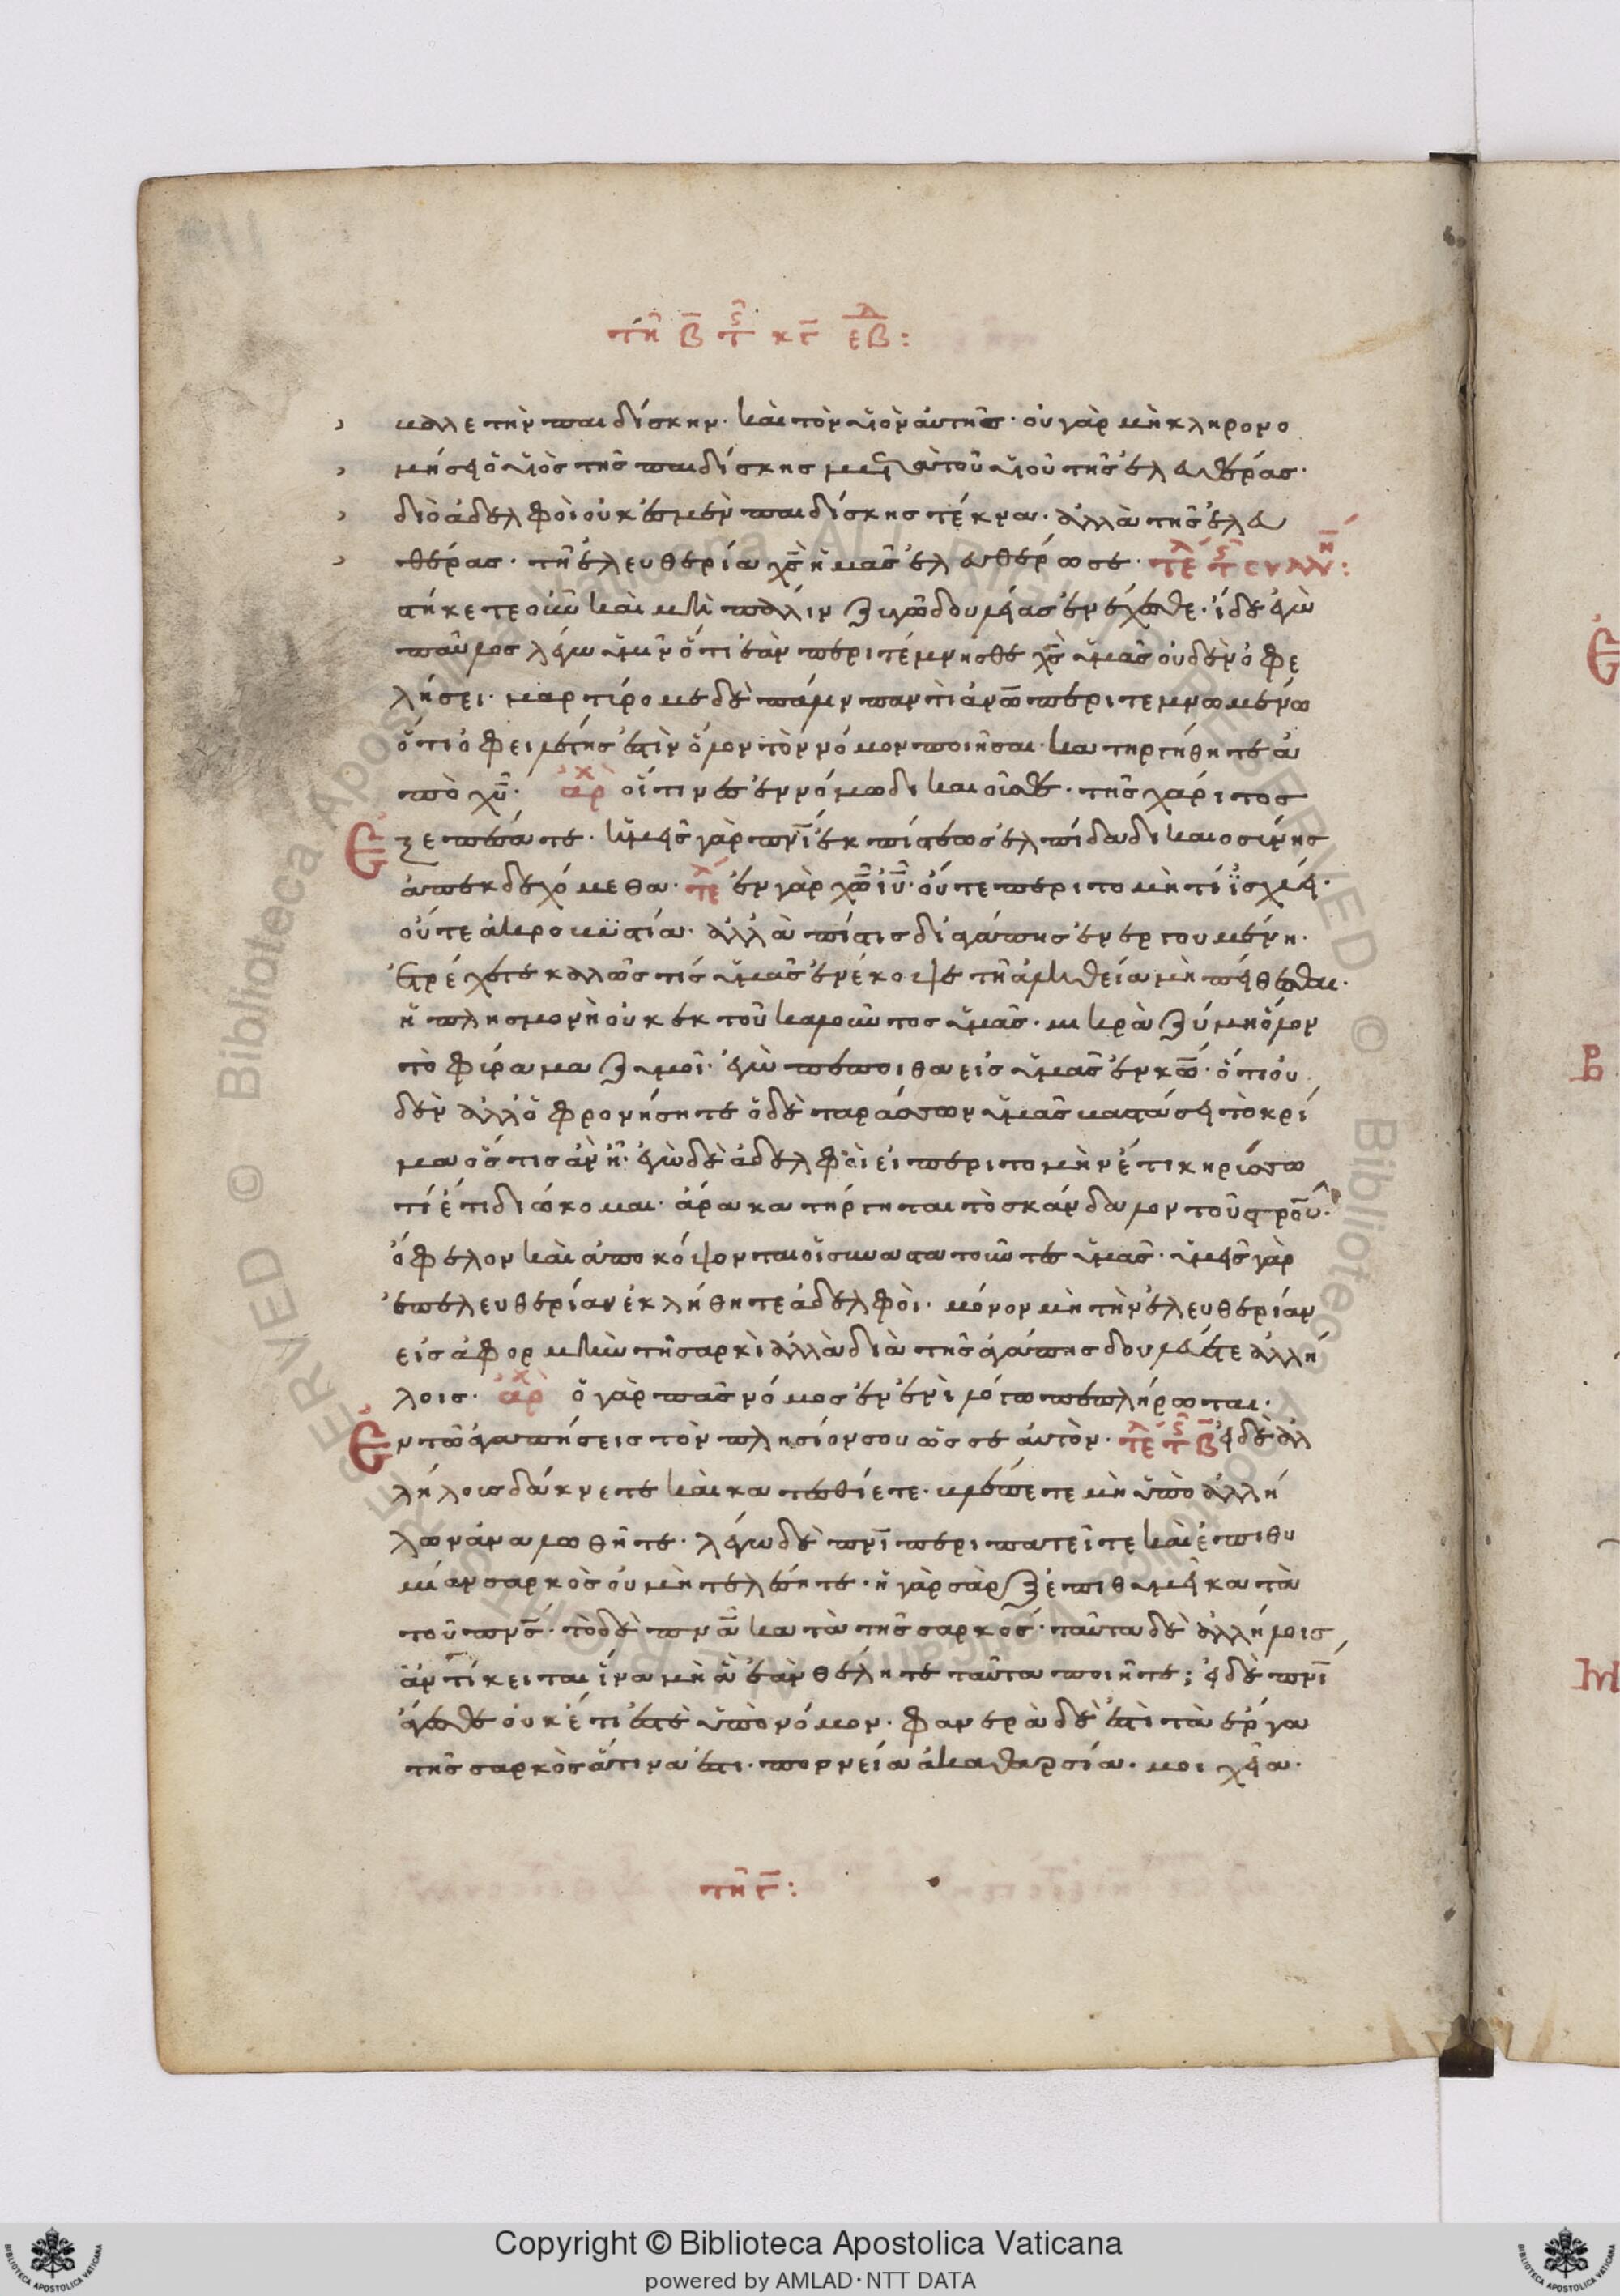 τῆ β̄ τ ς κγ̄ εβλ :
καλλε τὴν παιδίσκην· καὶ τὸν υἱὸν αὐτῆς· οὐ γὰρ μὴ κληρονο
μήσει ὁ υἱὸς τῆς παιδίσκης μετὰ τοῦ υἱοῦ τῆς ἐλευθέρας·
διὸ ἀδελφοὶ οὐκ ἐσμὲν παιδίσκης τέκνα· ἀλλὰ τῆς ἐλευ
θέρας· τῆ ἐλευθερία χ̅ς̅ ἡμᾶς ἐλευθέρωσε· τε
στήκετε οὖν καὶ μὴ πάλιν ζυγῶ δουλείας ἐνέχεσθε· ἴδε ἐγὼ
παῦλος λέγω ὑμῖν ὅτι ἐὰν περιτέμνησθε χ̅ς̅ ὑμᾶς οὐδὲν ὀφε
λήσει· μαρτίρομε δὲ πάλιν παντὶ ἀν̅ω̅ περιτεμνωμένω
ὅτι ὀφειλέτης ἐστὶν ὅλον τὸν νόμον ποιῆσαι· κατηργήθητε ἀ
πὸ χ̅υ̅· ἀρχ οἵτινες ἐν νόμω δικαιοῦσθε· τῆς χάριτος
Ἐξεπέσατε· ἡμεῖς γὰρ πν̅ι̅ ἐκ πίστεως ἐλπίδα δικαιοσύνης
ἀπεκδεχόμεθα· τελ ἐν γὰρ χ̅ω̅ ἰ̅υ̅· οὔτε περιτομὴ τί ἰσχύει·
οὔτε ἀκροβυστία· ἀλλὰ πίστις δι ἀγάπης ἐνεργουμένη·
ἐτρέχετε καλλῶς τίς ὑμᾶς ἐνέκοψε τῆ ἀληθεία μὴ πείθεσθαι·
ἡ πλησμονὴ οὐκ ἐκ τοῦ καλοῦντος ὑμᾶς· μικρὰ ζύμη ὅλον
τὸ φίραμα ζυμοῖ· ἐγὼ πέποιθα εἰς ὑμᾶς ἐν κ̅ω̅· ὅτι οὐ
δὲν ἄλλο φρονήσητε ὁ δὲ ταράσσων ὑμᾶς βαστάσει τὸ κρί
μα ὅστις ἂν ἦ· ἐγὼ δὲ ἀδελφοὶ εἰ περιτομὴν ἔτι κηρύσσω
τί ἔτι διώκομαι· ἄρα κατήργηται τὸ σκάνδαλον τοῦ στρο̅υ̅·
ὄφελον καὶ ἀποκόψονται οἱ ἀναστατοῦντες ὑμᾶς· ὑμεῖς γὰρ
ἐπ ἐλευθερίαν ἐκλήθητε ἀδελφοὶ· μόνον μὴ τὴν ἐλευθερίαν
εἰς ἀφορμὴν τῆ σαρκὶ ἀλλὰ διὰ τῆς ἀγάπης δουλεύετε ἀλλή
λοις· ἀρχ ὁ γὰρ πᾶς νόμος ἐν ἑνὶ λόγω πεπλήρωται·
Ἐν τῶ ἀγαπήσεις τὸν πλησίον σου ὡς σεαυτὸν· τελ τ ς β̄ εἰ δὲ ἀλ
λήλους δάκνετε καὶ κατεσθίετε· βλέπετε μὴ ὑπὸ ἀλλή
λων ἀναλωθῆτε· λέγω δὲ πν̅ι̅ περιπατεῖτε καὶ ἐπιθυ
μίαν σαρκὸς οὐ μὴ τελέσητε· ἡ γὰρ σὰρξ ἐπιθυμεῖ κατὰ
τοῦ πν̅ς̅· τὸ δὲ πν̅α̅ κατὰ τῆς σαρκός· ταῦτα δὲ ἀλλήλοις
ἀντίκειται ἵνα μὴ ἃ ἐὰν θέλητε ταῦτα ποιῆτε; εἰ δὲ πν̅ι̅
ἄγεσθε οὐκ ἔτι ἐστὲ ὑπὸ νόμον· φανερὰ δὲ ἐστι τὰ ἔργα
τῆς σαρκὸς ἅτινα ἐστι· πορνεία ἀκαθαρσία· μοιχεία·
τῆ γ̄ :
Copyright © Biblioteca Apostolica Vaticana
powered by AMLAD·NTT DATA